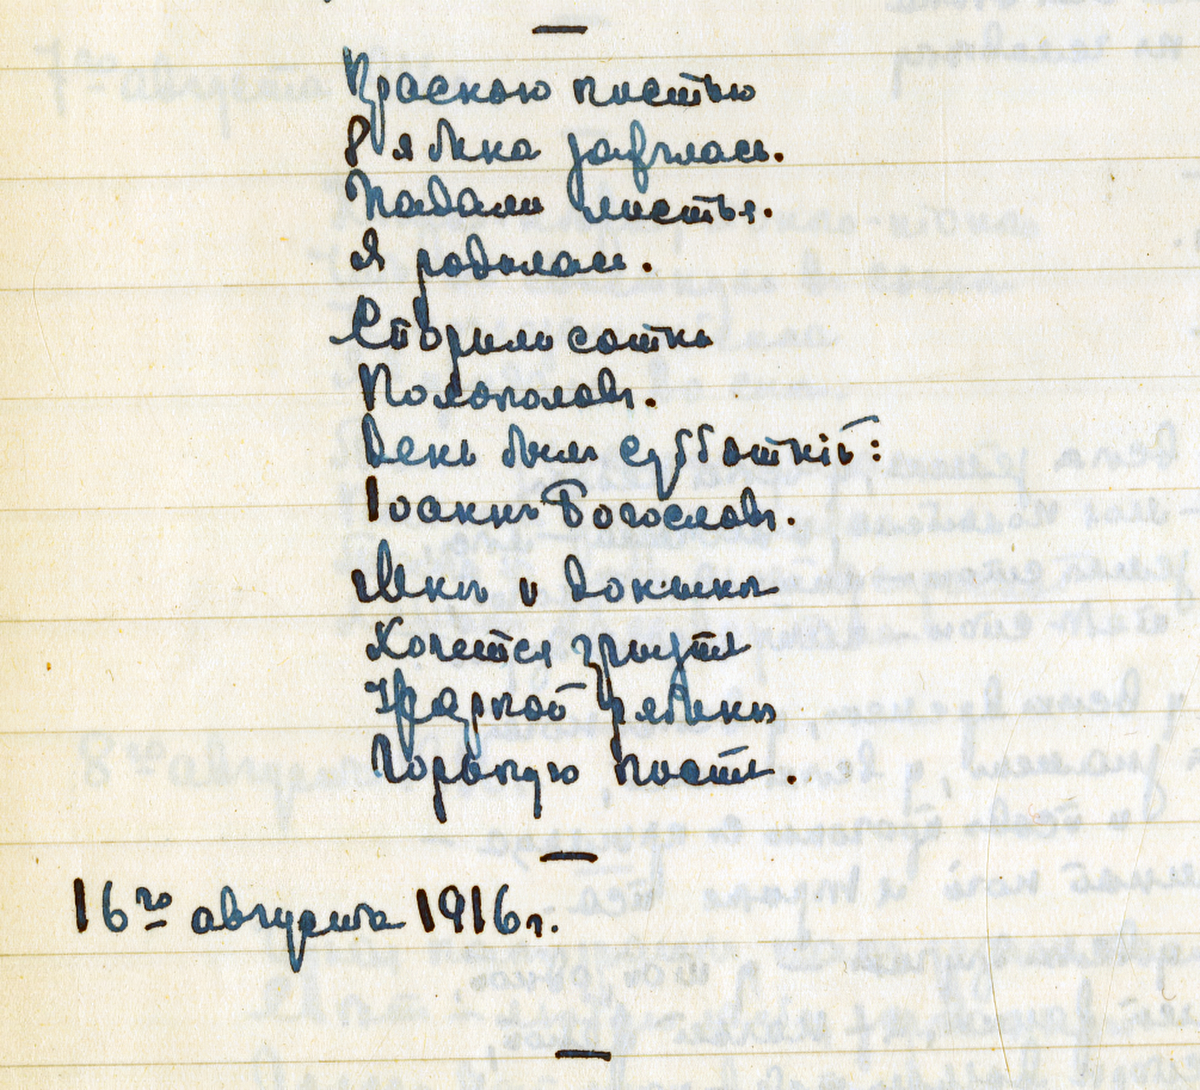 Красною кистью
Рябина зажглась.
Падали листья.
Я родилась.
Спорили сотни
Колоколовъ.
День былъ субботнiй:
Iоаннъ Богословъ.
Мнѣ и донынѣ
Хочется грызть
Жаркой рябины
Горькую кисть.
16го августа 1916г.